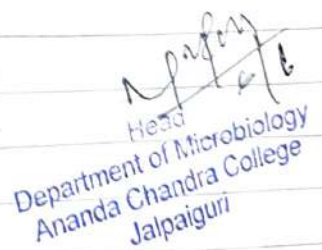 Head
Department of Microbiology
Ananda Chandra College
Jalpaiguri